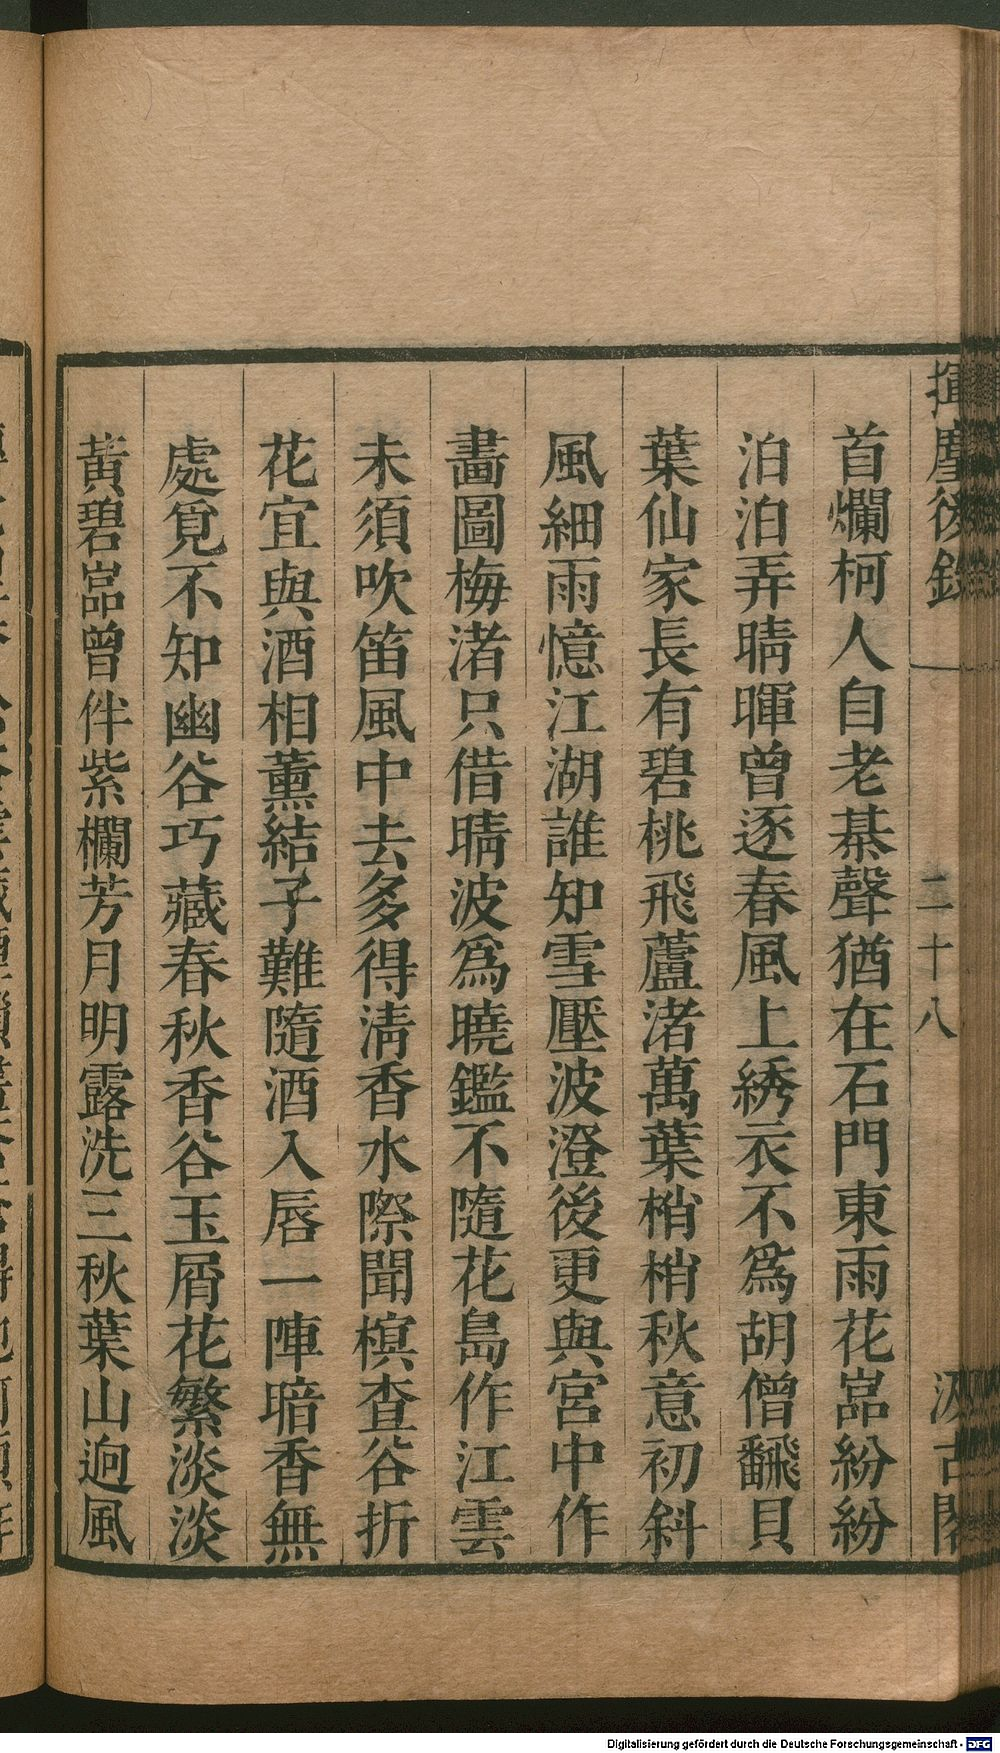 揮麈後錄
二十八
汲古閣
首爛柯人自老棊聲猶在石門東雨花嵓紛紛
泊泊弄晴暉曾逐春風上綉衣不爲胡僧飜貝
葉仙家長有碧桃飛蘆渚萬葉梢梢秋意初斜
風細雨憶江湖誰知雪壓波澄後更與宮中作
畵圖梅渚只借晴波爲曉鑑不隨花島作江雲
未須吹笛風中去多得淸香水際聞榠查谷折
花宜與酒相薰結子難隨酒入唇一陣暗香無
處覓不知幽谷巧藏春秋香谷玉屑花繁淡淡
黃碧嵓曾伴紫欄芳月明露洗三秋葉山逈風